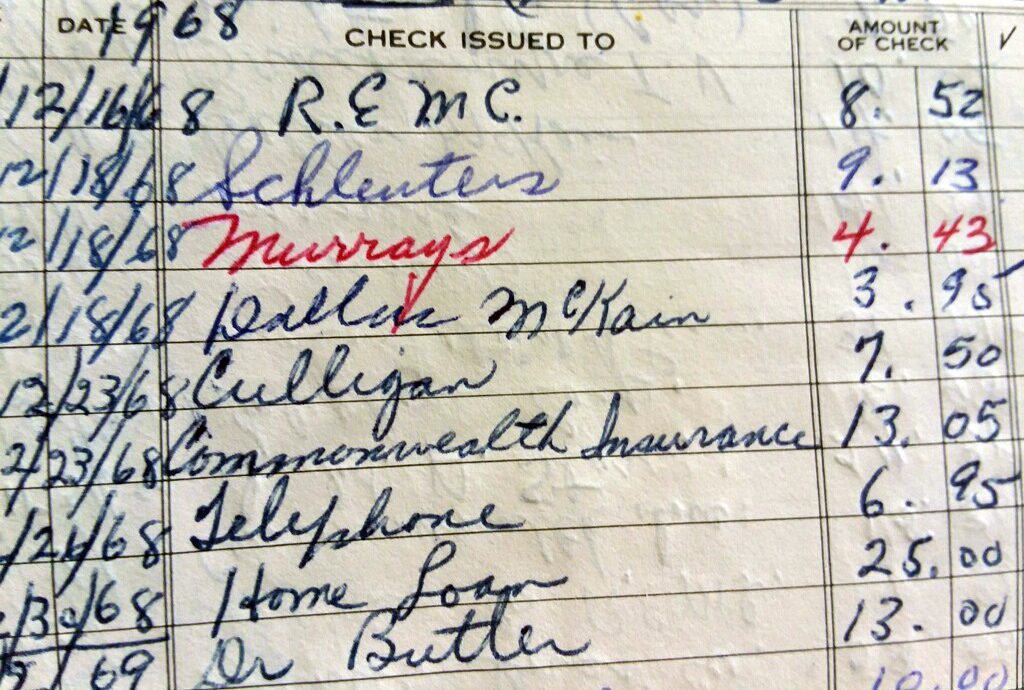 DATE 1968 CHECK ISSUED TO AMOUNT OF CHECK √
12/16/68 R.E.M.C. 8. 52
12/18/68 Schlenters 9. 13
12/18/68 Murrays 4. 43
2/18/68 Dallas McKain 3. 95
12/23/68 Culligan 7. 50
2/23/68 Commonwealth Insurance 13. 05
/26/68 Telephone 6. 95
/30/68 Home Loan 25. 00
/69 Dr Butler 13. 00
10.00